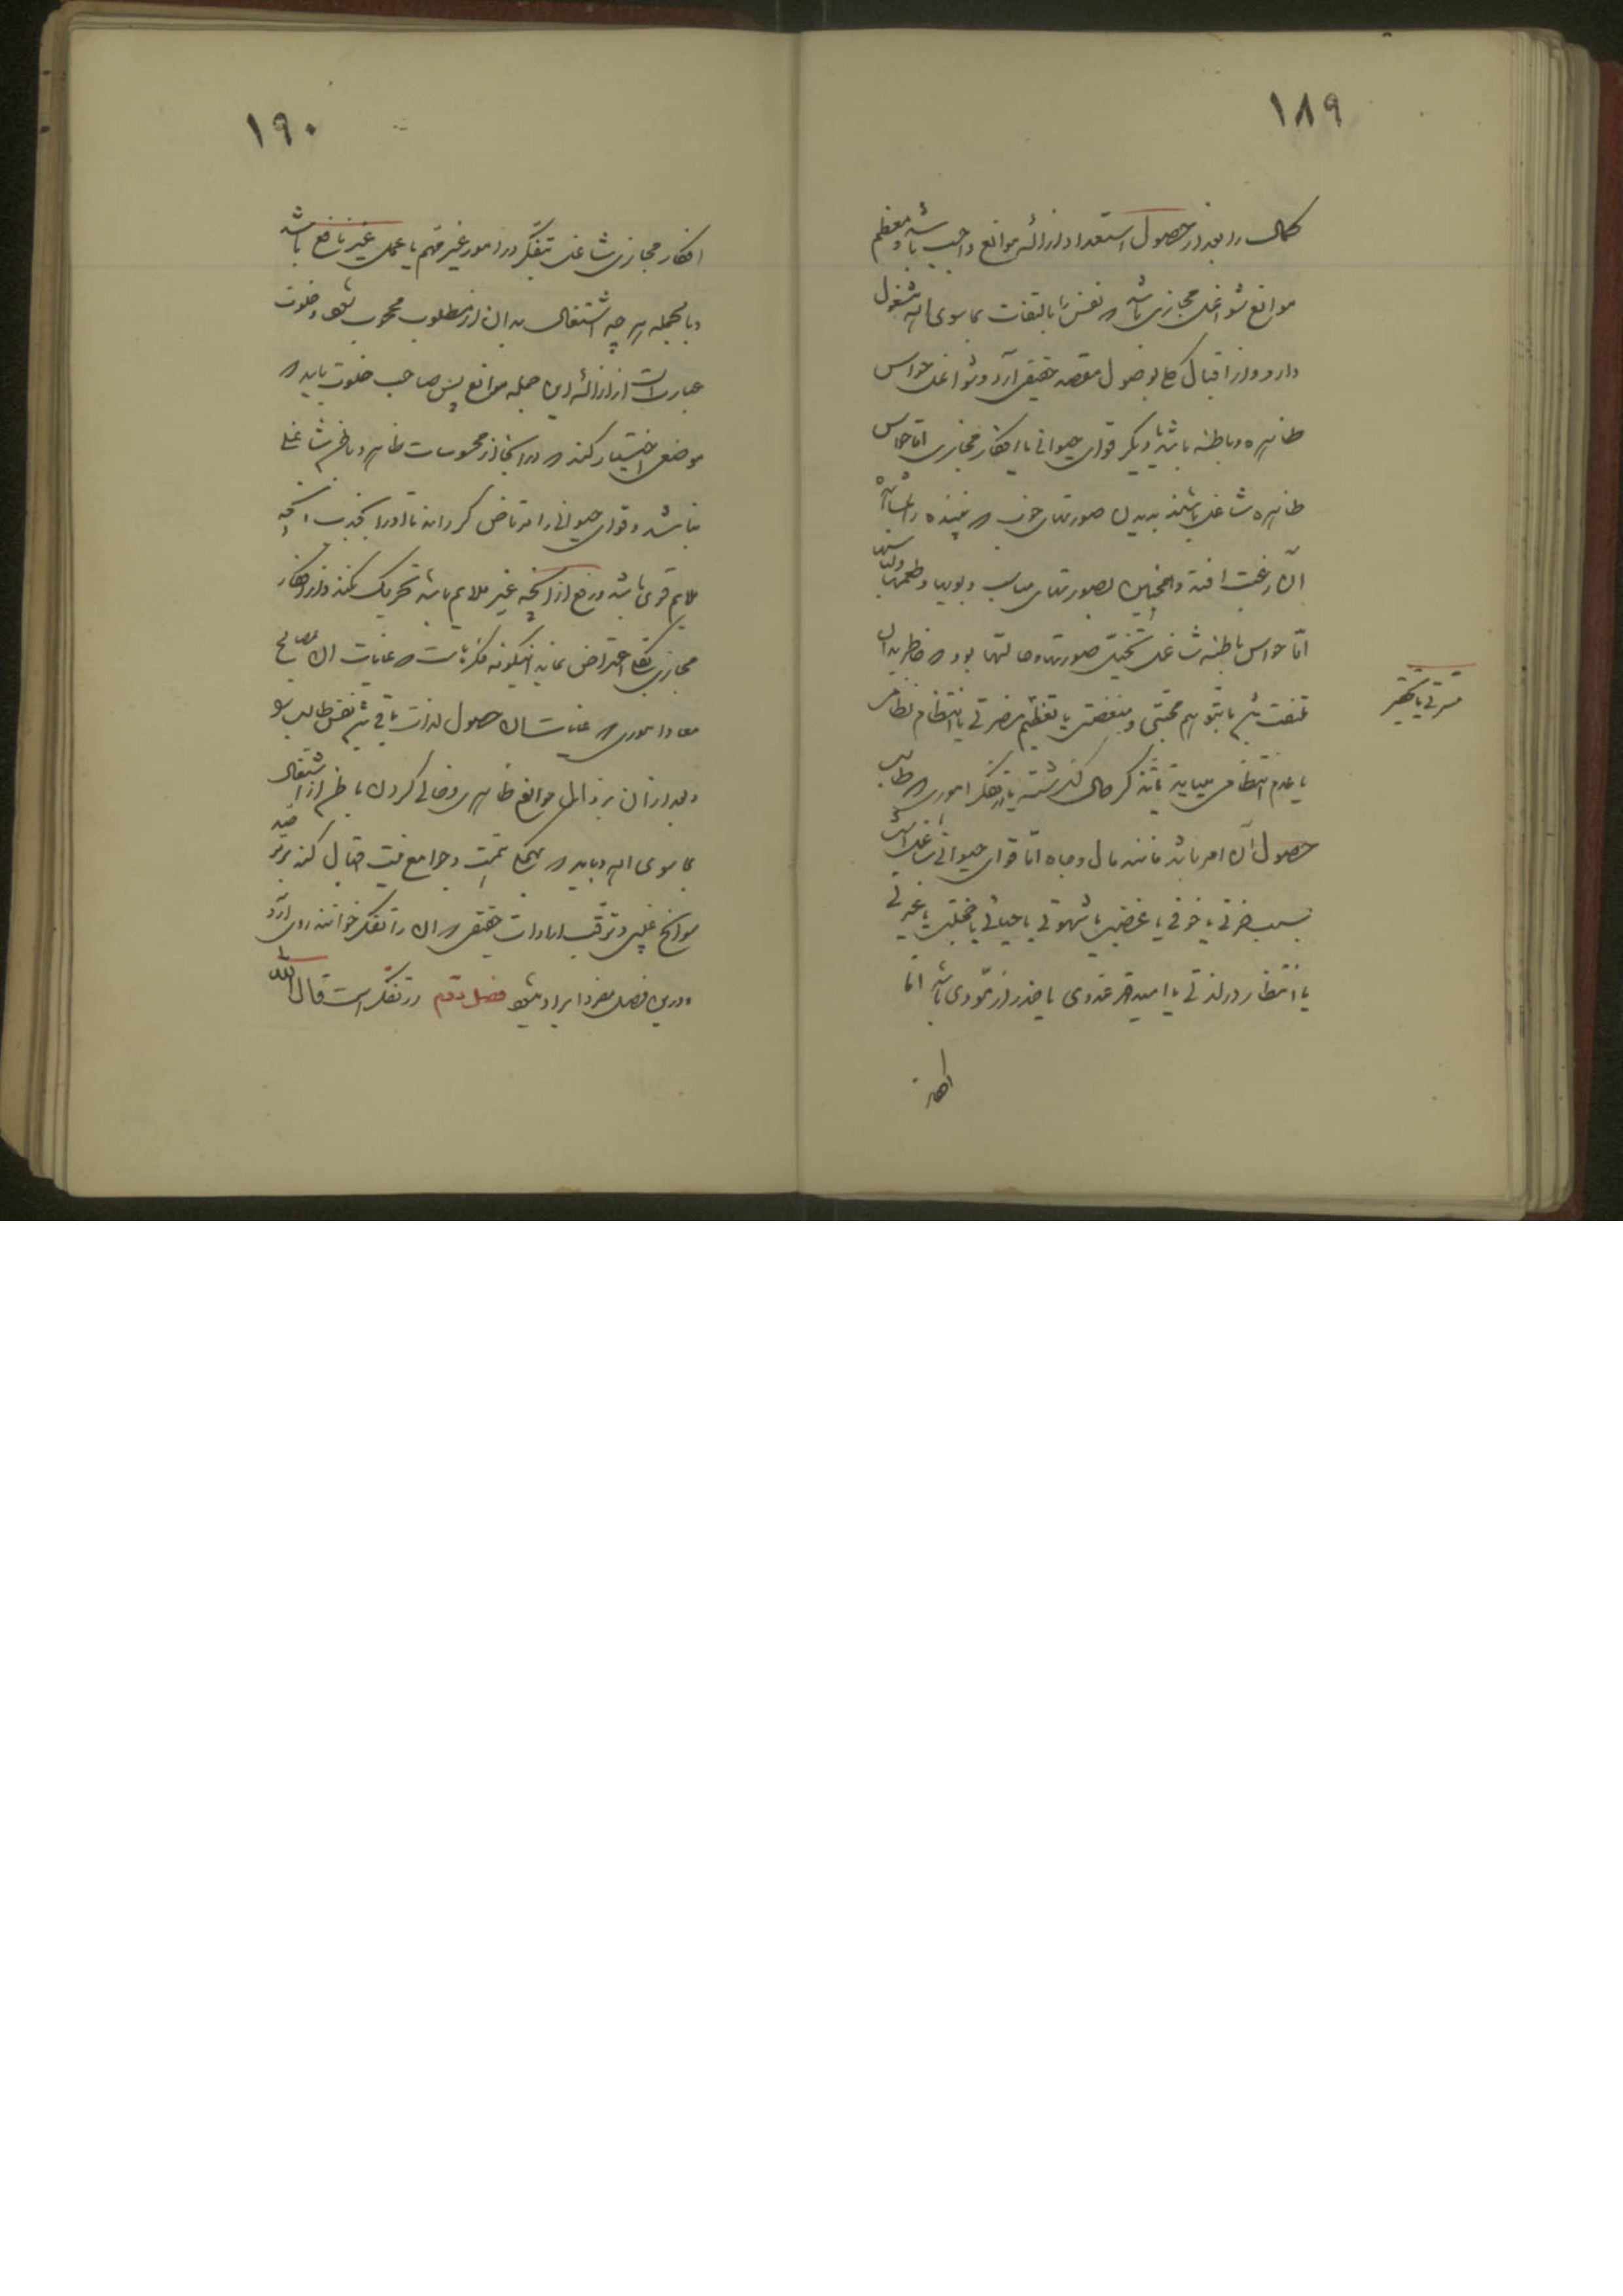 ۱۸۹
کمال را بعد از حصول استعداد ازاله موانع واجب باشد و معظم
موانع شواغل مجازی باشد که نفس را بالتفات بما سوی الله مشغول
دارد و از اقبال کلی بوصول مقصد حقیقی آرد و شواغل حواس
ظاهره و باطنه باشد یا دیگر قوای حیوانی یا افکار مجازی اما حواس
ظاهره شاغل باشند بدیدن صورتهای خوب که بیننده را
آن رغبت افتد و همچنین بصورتهای مناسب و بویها و طعمها
اما حواس باطنه شاغل بتخیل صورتها و حالتها بود که خاطر بدان
ملتفت شد یا بتوهم محبتی و مبغضتی یا تعظیم مضرتی یا انتظام نظامی
مسرتی یا تحقیر
یا عدم انتظامی یا بتذکر حال گذشته یا تفکر اموری که طالب
حصول آن امر باشد مانند مال و جاه اما قوای حیوانی شاغل
بسبب حزنی یا خوفی یا غضبی یا شهوتی یا خیانتی یا خجلتی یا غیرتی
یا انتظار در لذتی یا امید قهر عدوی یا حذر از مؤذی باشد اما
افکار
۱۹۰
افکار مجازی شاغل بتفکر در امور غیر مهم یا عمل غیر نافع باشد
و بالجمله هر چه اشتغال بدان از مطلوب محجوب شود و خلوت
عبارت از ازاله این جمله موانع پس صاحب خلوت باید که
موضعی اختیار کند که در آنجا از محسوسات ظاهر و باطن شاغلی
نباشد و قوای حیوانی را مرتاض گرداند تا او را بجذب آنچه
ملایم قوی باشد و دفع از آنچه غیر ملایم باشد تحریک نکند و از افکار
مجازی بکلی اعراض نماید اینگونه فکرهاست که غایات آن مصالح
معاد اموری که غایات آن حصول لذات باقی باشد نفس طالب را
و بعد از آن بزوال موانع ظاهری و خالی کردن باطن از اشتغال
بما سوی الله و باید که بهمگی همت و جوامع نیت اقبال کند بر ترصد
سوانح غیبی و ترقب واردات حقیقی و آن را تفکر خوانند روی آرد
و درین فصل مفرد ایراد شود فصل دوم در تفکر است قال الله